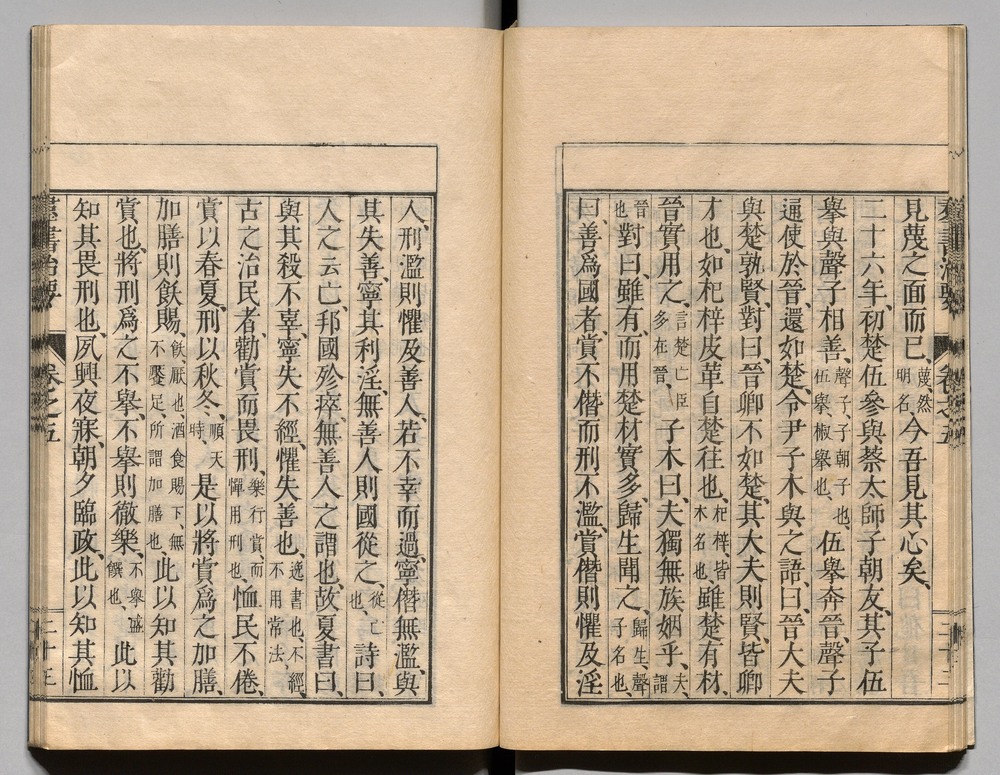 見蔑之面而已、蔑、然明名、今吾見其心矣、
二十六年、初楚伍參與蔡太師子朝友、其子伍
擧與聲子相善、聲子、子朝子也、伍擧、椒擧也、伍擧奔晉、聲子
通使於晉、還如楚、令尹子木與之語、曰、晉大夫
與楚孰賢、對曰、晉卿不如楚、其大夫則賢、皆卿
才也、如杞梓皮革自楚往也、杞梓、皆木名也、雖楚有材、
晉實用之、言楚亡臣多在晉、子木曰、夫獨無族姻乎、夫、謂
晉也、對曰、雖有、而用楚材實多、歸生聞之、歸生、聲子名也、
曰、善爲國者、賞不僭而刑不濫、賞僭則懼及淫
人、刑濫則懼及善人、若不幸而過、寧僭無濫、與
其失善、寧其利淫、無善人則國從之、從亡也、詩曰、
人之云亡、邦國殄瘁、無善人之謂也、故夏書曰、
與其殺不辜、寧失不經、懼失善也、逸書也、不經、不用常法、
古之治民者、勸賞而畏刑、樂行賞、而憚用刑也、恤民不倦、
賞以春夏、刑以秋冬、順天時、是以將賞爲之加膳、
加膳則飫賜、飫、厭也、酒食賜下、無不饜足、所謂加膳也、此以知其勸
賞也、將刑爲之不擧、不擧則徹樂、不擧盛饌也、此以
知其畏刑也、夙興夜寐、朝夕臨政、此以知其恤
羣書治要
卷之五
二十五